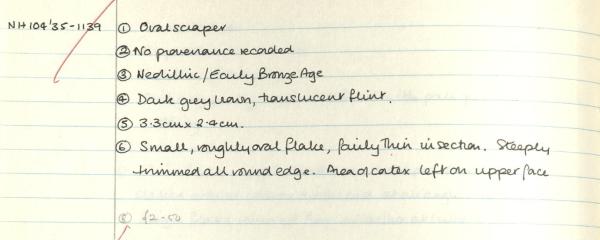 NH104'35-1139 ① Oval scraper
② No provenance recorded
③ Neolithic/Early Bronze Age
④ Dark grey brown, translucent flint.
⑤ 3.3cm x 2.4cm.
⑥ Small, roughly oval flake, fairly thin in section. Steeply
trimmed all round edge. Area of cortex left on upper face
⑧ £2-50